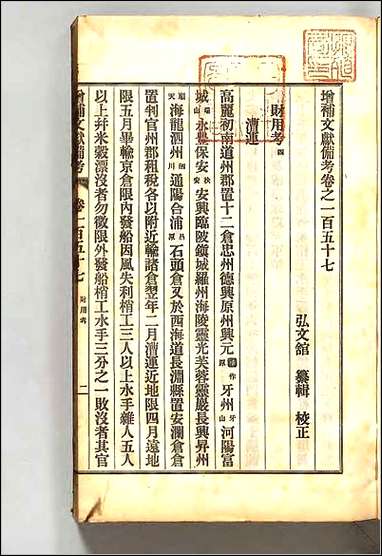 增補文獻備考卷之一百五十七
弘文館 纂輯 校正
財用考 四
漕運
高麗初南道州郡置十二倉忠州德興原州興元 牙州 牙山 河陽富
城 瑞山 永豊保安 安興臨陂鎭城羅州海陵靈光芙蓉靈巖長興昇州
海龍泗州 泗川 通陽合浦 石頭倉又於西海道長淵縣置安瀾倉倉
置判官州郡租稅各以附近輸諸倉翌年二月漕運近地限四月遠地
限五月畢輸京倉限內發船因風失利梢工三人以上水手雜人五人
以上幷米穀漂沒者勿徵限外發船梢工水手三分之一敗沒者其官
增補文獻備考 卷一百五十七 財用考 一